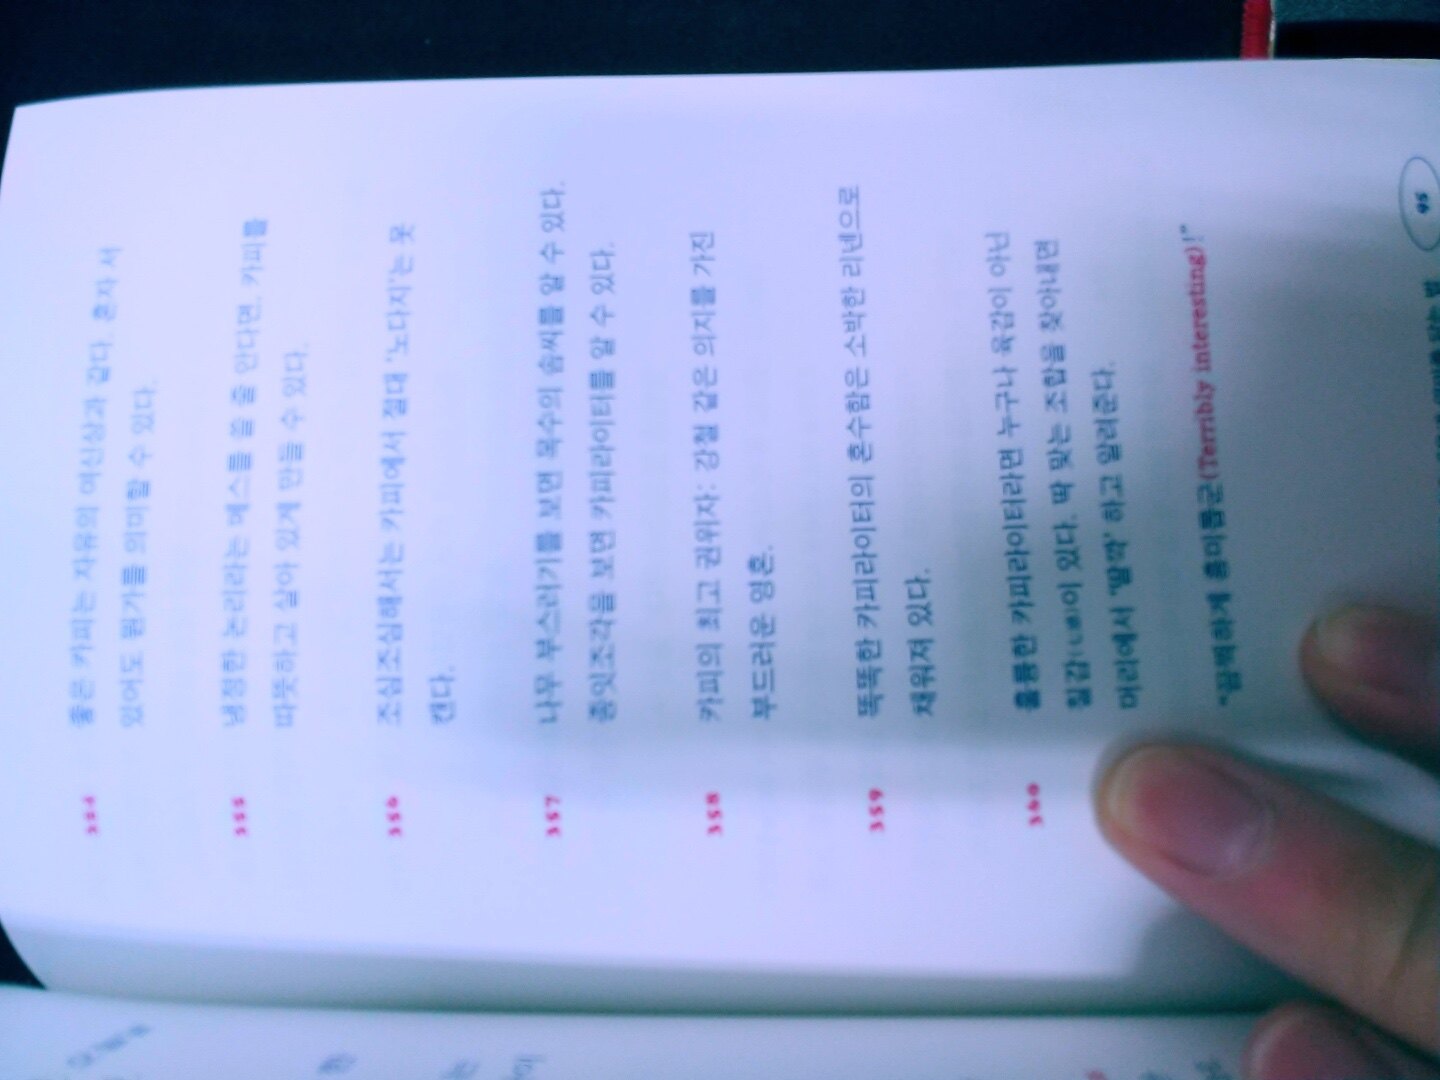 354 좋은 카피는 자유의 여신상과 같다. 혼자 서
있어도 뭔가를 의미할 수 있다.
355 냉정한 논리라는 메스를 쓸 줄 안다면, 카피를
따뜻하고 살아 있게 만들 수 있다.
356 조심조심해서는 카피에서 절대 '노다지'는 못
캔다.
357 나무 부스러기를 보면 목수의 솜씨를 알 수 있다.
종잇조각을 보면 카피라이터를 알 수 있다.
358 카피의 최고 권위자: 강철 같은 의지를 가진
부드러운 영혼.
359 똑똑한 카피라이터의 혼수함은 소박한 리넨으로
채워져 있다.
360 훌륭한 카피라이터라면 누구나 육감이 아닌
칠감(七感)이 있다. 딱 맞는 조합을 찾아내면
머리에서 '딸깍' 하고 알려준다.
흥미롭군(Terribly interesting)!"
95